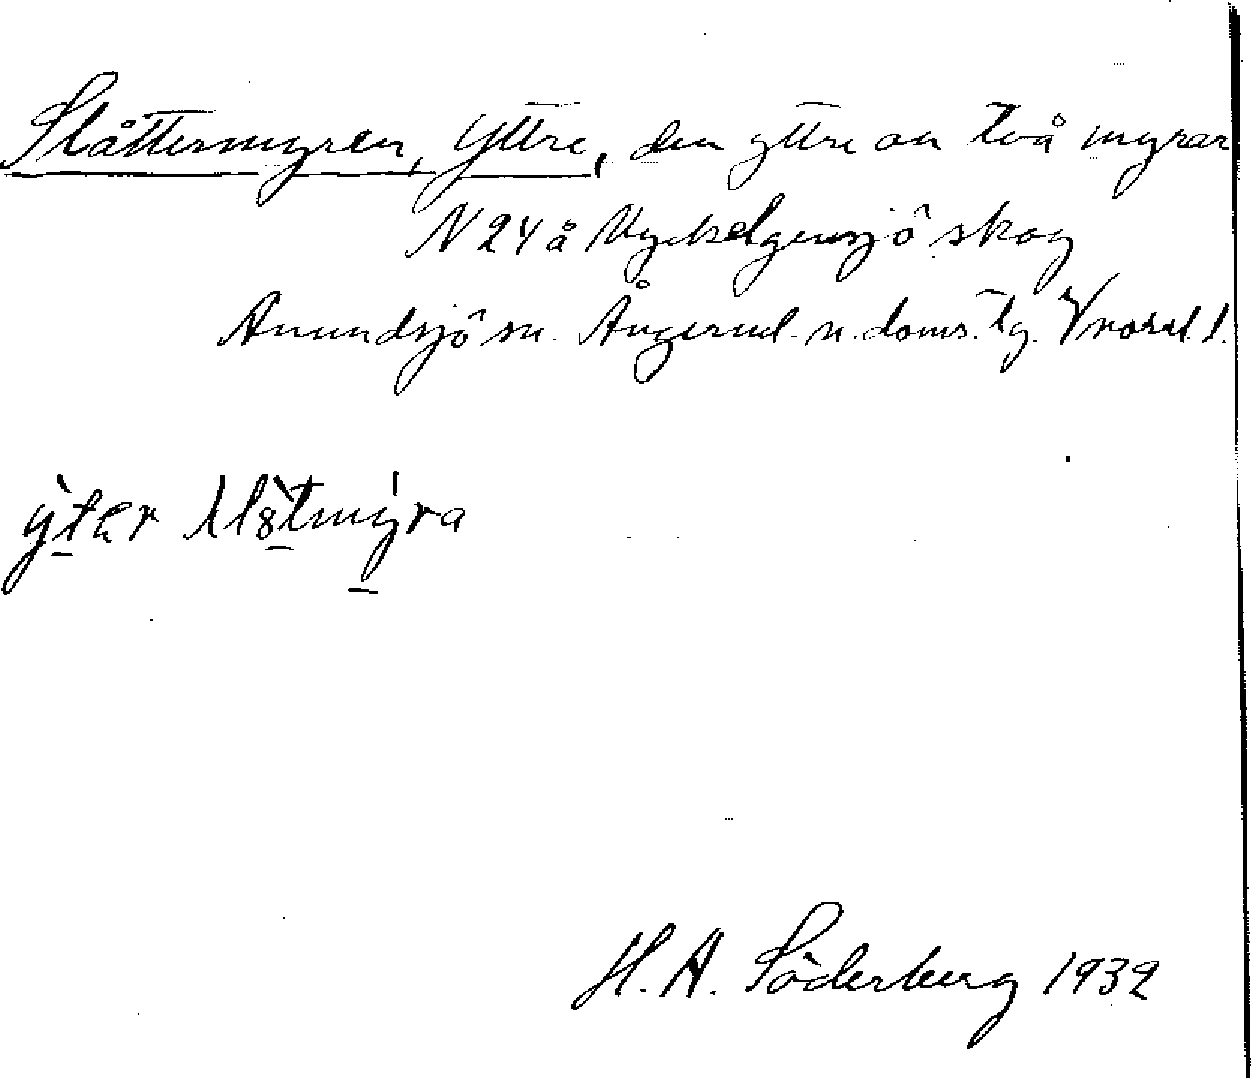 Slåttermyren, Yttre, den yttre av två myrar
N 24 å Myckelgensjö skog
Anundsjö sn. Ångerml. n. doms. tg. Vnorrl. l.
H. A. Söderberg 1932